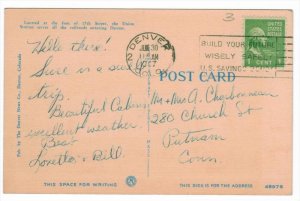 Located at the foot of 17th Street, the Union
Station serves all the railroads entering Denver.
3
DENVER
JUN 30
11 AM
BUILD YOUR FUTURE
WISELY SAFELY
U.S. SAVINGS BONDS
Hello there!
Sure is a swell
trip.
Beautiful Cabins,
excellent weather.
Best
Loretta & Bill.
POST CARD
Mr + Mrs A. Charbonneau
280 Church St
Putnam
Conn.
Pub. by The Denver News Co., Denver, Colorado
THIS SPACE FOR WRITING
THIS SIDE IS FOR THE ADDRESS